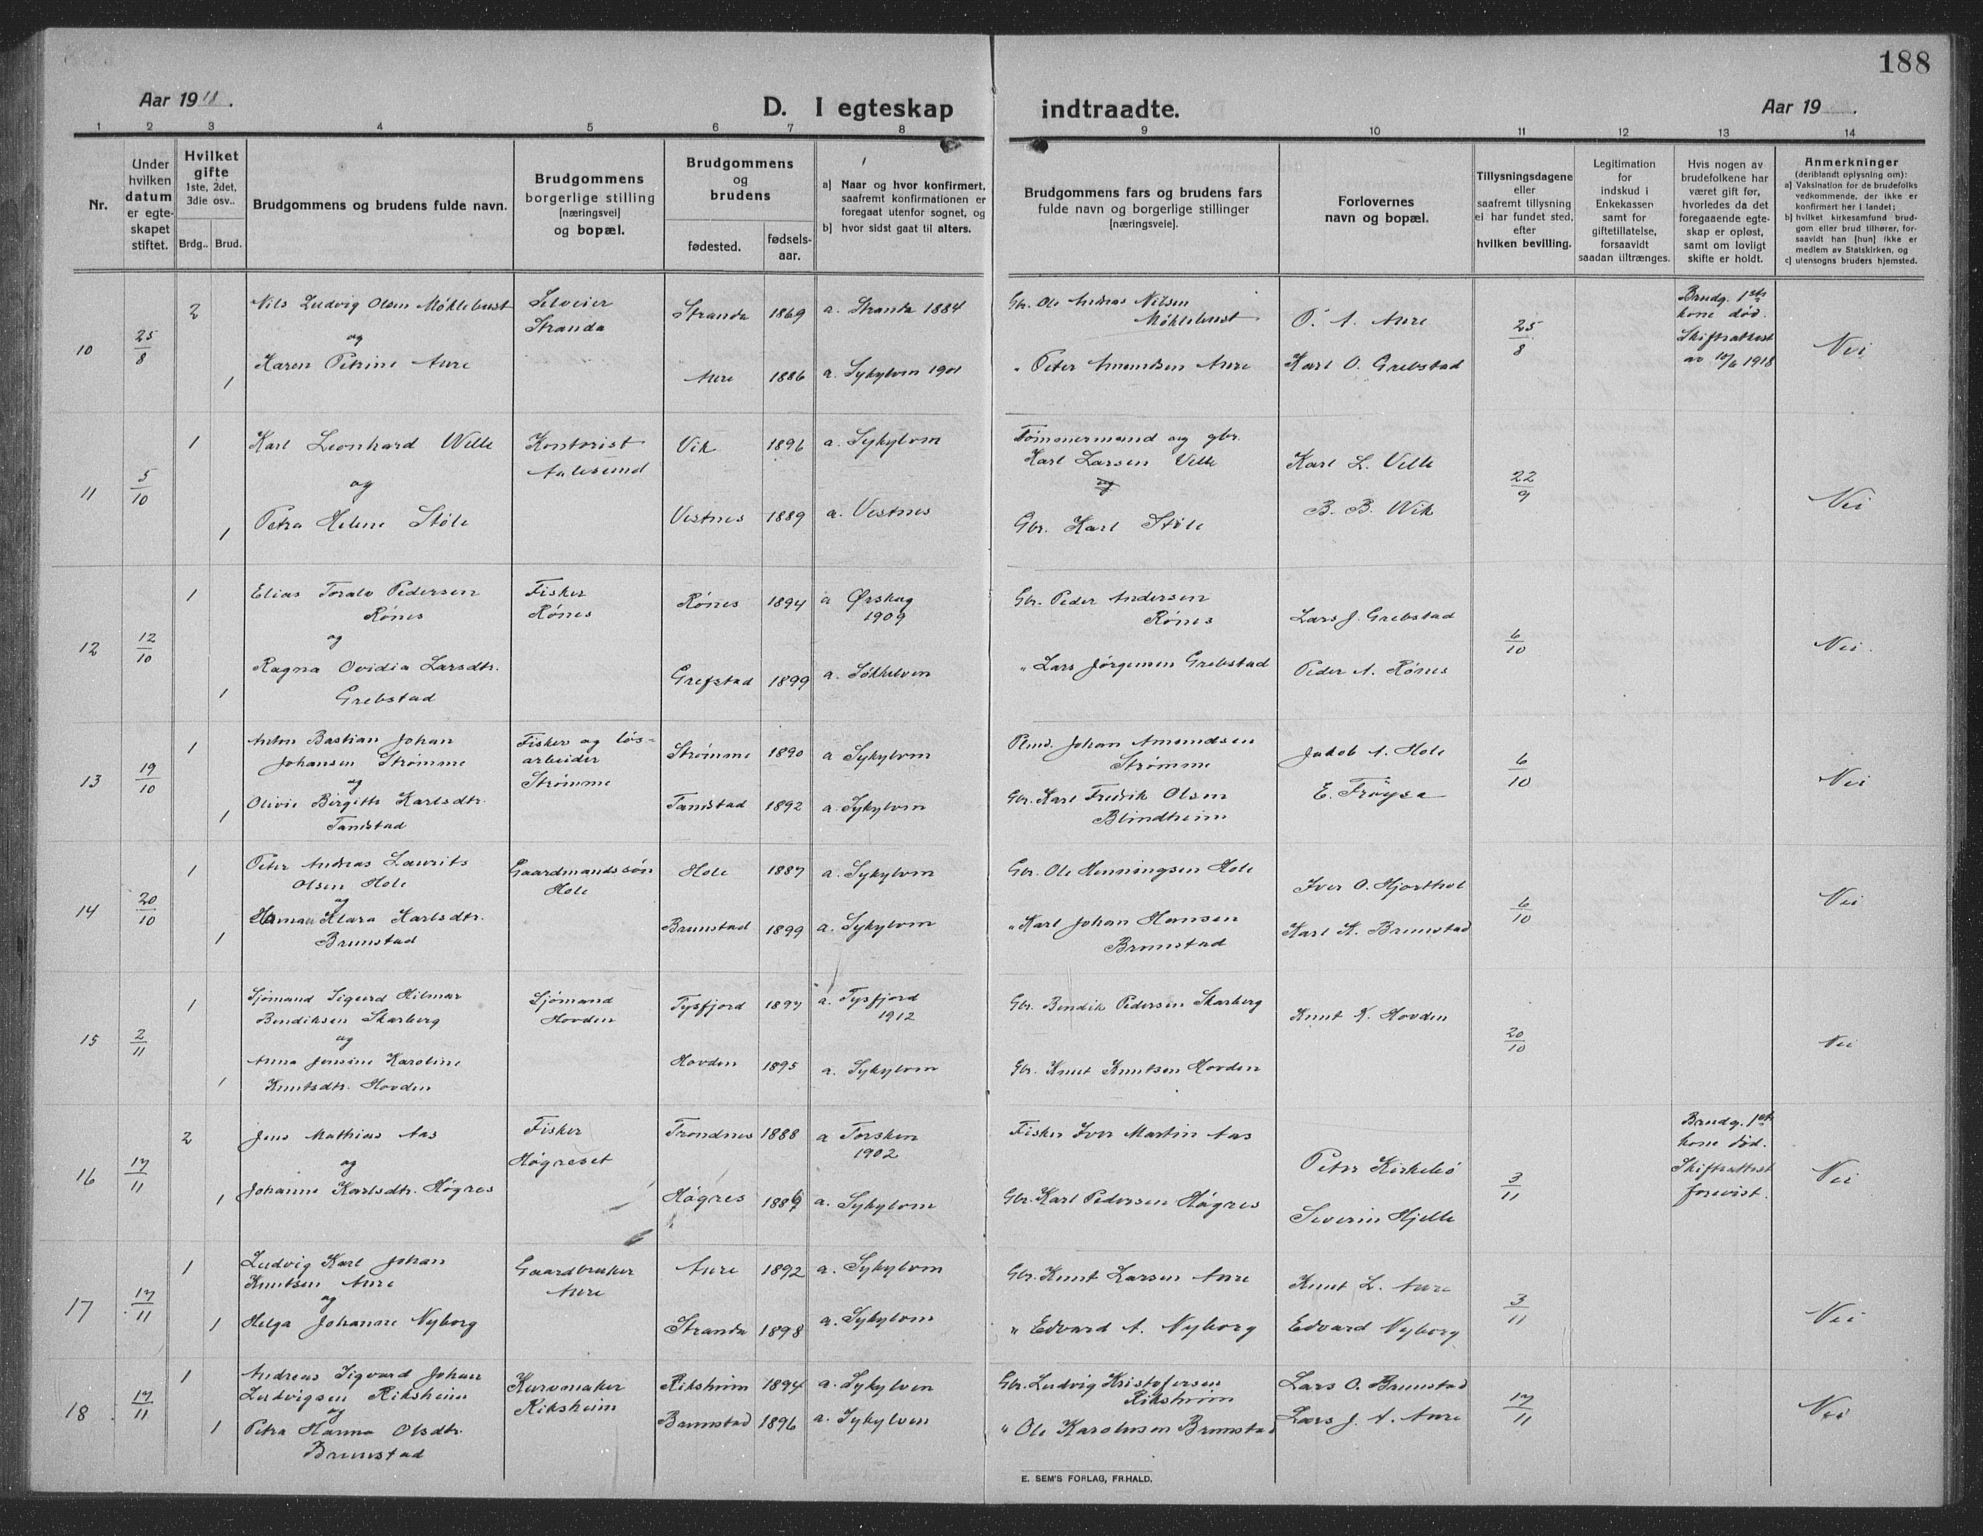 188
Aar 1918.
D. I egteskap
indtraadte.
Aar 19 .
1 2 3 4 5 6 7 8 9 10 11 12 13 14
Nr.
Under hvilken datum er egteskapet stiftet.
Hvilket gifte
1ste, 2det, 3die osv..
Brdg.. Brud.
Brudgommens og brudens fulde navn.
Brudgommens borgerlige stilling [næringsvei] og bopæl.
Brudgommens og brudens
fødested. fødsels-aar.
a) Naar og hvor konfirmert, saafremt konfirmationen er foregaat utenfor sognet, og
b) hvor sidst gaat til alters.
Brudgommens fars og brudens fars
fulde navn og borgerlige stillinger
[næringsveie].
Forlovernes
navn og bopæl.
Tillysningsdagene
eller
saafremt tillysning
ei har fundet sted,
efter
hvilken bevilling.
Legitimation
for
indskud i
Enkekassen
samt for
giftetillatelse,
forsaavidt
saadan tiltrænges.
Hvis nogen av
brudefolkene har
været gift før,
hvorledes da det
foregaaende egte-
skap er opløst,
samt om lovligt
skifte er holdt.
Anmerkninger
(deriblandt oplysning om):
a) Vaksination for de brudefolks vedkommende, der ikke er konfirmert her i landet;
b) hvilket kirkesamfund brudgom eller brud tilhører, forsaavidt han [hun] ikke er medlem av Statskirken, og
c) utensogns bruders hjemsted.
10 25/8 2 Nils Ludvig Olsen Møklebust
og
1 Karen Petrine Aure
Selveier
Stranda
Stranda 1869 a. Stranda 1884
Aure 1886 a. Sykylven 1901
Gbr. Ole Andreas Nilsen
Møklebust
" Peter Amundsen Aure
O. A. Aure
Karl O. Grebstad
25/8
Brudg. 1ste
kone død.
Skifteattest
av 12/6 1918
Nei
11 5/10 1 Karl Leonhard Velle
og
1 Petra Helene Støle
Kontorist
Aalesund
Vik 1896 a. Sykylven
Vestnes 1889 a. Vestnes
Tømmermand og gbr.
Karl Larsen Velle
og
Gbr. Karl Støle
Karl L. Velle
B. B. Wik
22/9
Nei
12 12/10 1 Elias Toralv Pedersen
Rönes
og
1 Ragna Ovidia Larsdtr.
Grebstad
Fisker
Rönes
Rönes 1894 a Ørskog
1909
Grefstad 1899 a. Søkkelven
Gbr. Peder Andersen
Rönes
" Lars Jørgensen Grebstad
Lars J. Grebstad
Peder A. Rönes
6/10
Nei.
13 19/10 1 Anton Bastian Johan
Johansen Strømme
og
1 Olivie Birgitte Karlsdtr.
Tandstad
Fisker og løs-
arbeider
Strømme
Strømme 1890 a Sykylven
Tandstad 1892 a. Sykylven
Plmd. Johan Amundsen
Strømme
Gbr. Karl Fredrik Olsen
Blindheim
Jakob A. Hole
E. Frøysa
6/10
Nei
14 20/10 1 Peter Andreas Laurits
Olsen Hole
og
1 Klara Karlsdtr.
Brunstad
Gaardmandssön
Hole
Hole 1887 a. Sykylven
Brunstad 1899 a. Sykylven
Gbr. Ole Henningsen Hole
" Karl Johan Hansen
Brunstad
Iver O. Hjorthol
Karl K. Brunstad
6/10
Nei
15 2/11 1 Sjømand Sigurd Hilmar
Bendiksen Skarberg
og
1 Anna Jensine Karoline
Knutsdtr. Hovden
Sjømand
Hovden
Tysfjord 1897 a. Tysfjord
1912
Hovden 1895 a. Sykylven
Gbr. Bendik Pedersen Skarberg
Gbr. Knut Knutsen Hovden
Knut K. Hovden
20/10
Nei
16 17/11 2 Jens Mathias Aas
og
1 Johanne Karlsdtr. Høgres
Fisker
Høgreset
Trondnes 1888 a Torsken
1902
Høgres 1889 a. Sykylven
Fisker Iver Martin Aas
Gbr. Karl Pedersen Høgres
Peter Kirkebö
Severin Hjelle
3/11
Brudg. 1ste
kone død.
Skifteattest
forevist.
Nei
17 17/11 1 Ludvig Karl Johan
Knutsen Aure
og
1 Helga Johanne Nyborg
Gaardbruker
Aure
Aure 1892 a. Sykylven
Stranda 1898 a. Sykylven
Gbr. Knut Larsen Aure
" Edvard A. Nyborg
Knut L. Aure
Edvard Nyborg
3/11
Nei
18 17/11 1 Andreas Sigvard Johan
Ludvigsen Riksheim
og
1 Petra Hanna Olsdtr.
Brunstad
Kurvmaker
Riksheim
Riksheim 1894 a. Sykylven
Brunstad 1896 a. Sykylven
Gbr. Ludvig Kristofersen
Riksheim
" Ole Karolusen Brunstad
Lars O. Brunstad
Lars J. A. Aure
17/11
Nei
E. SEM'S FORLAG, FR.HALD.